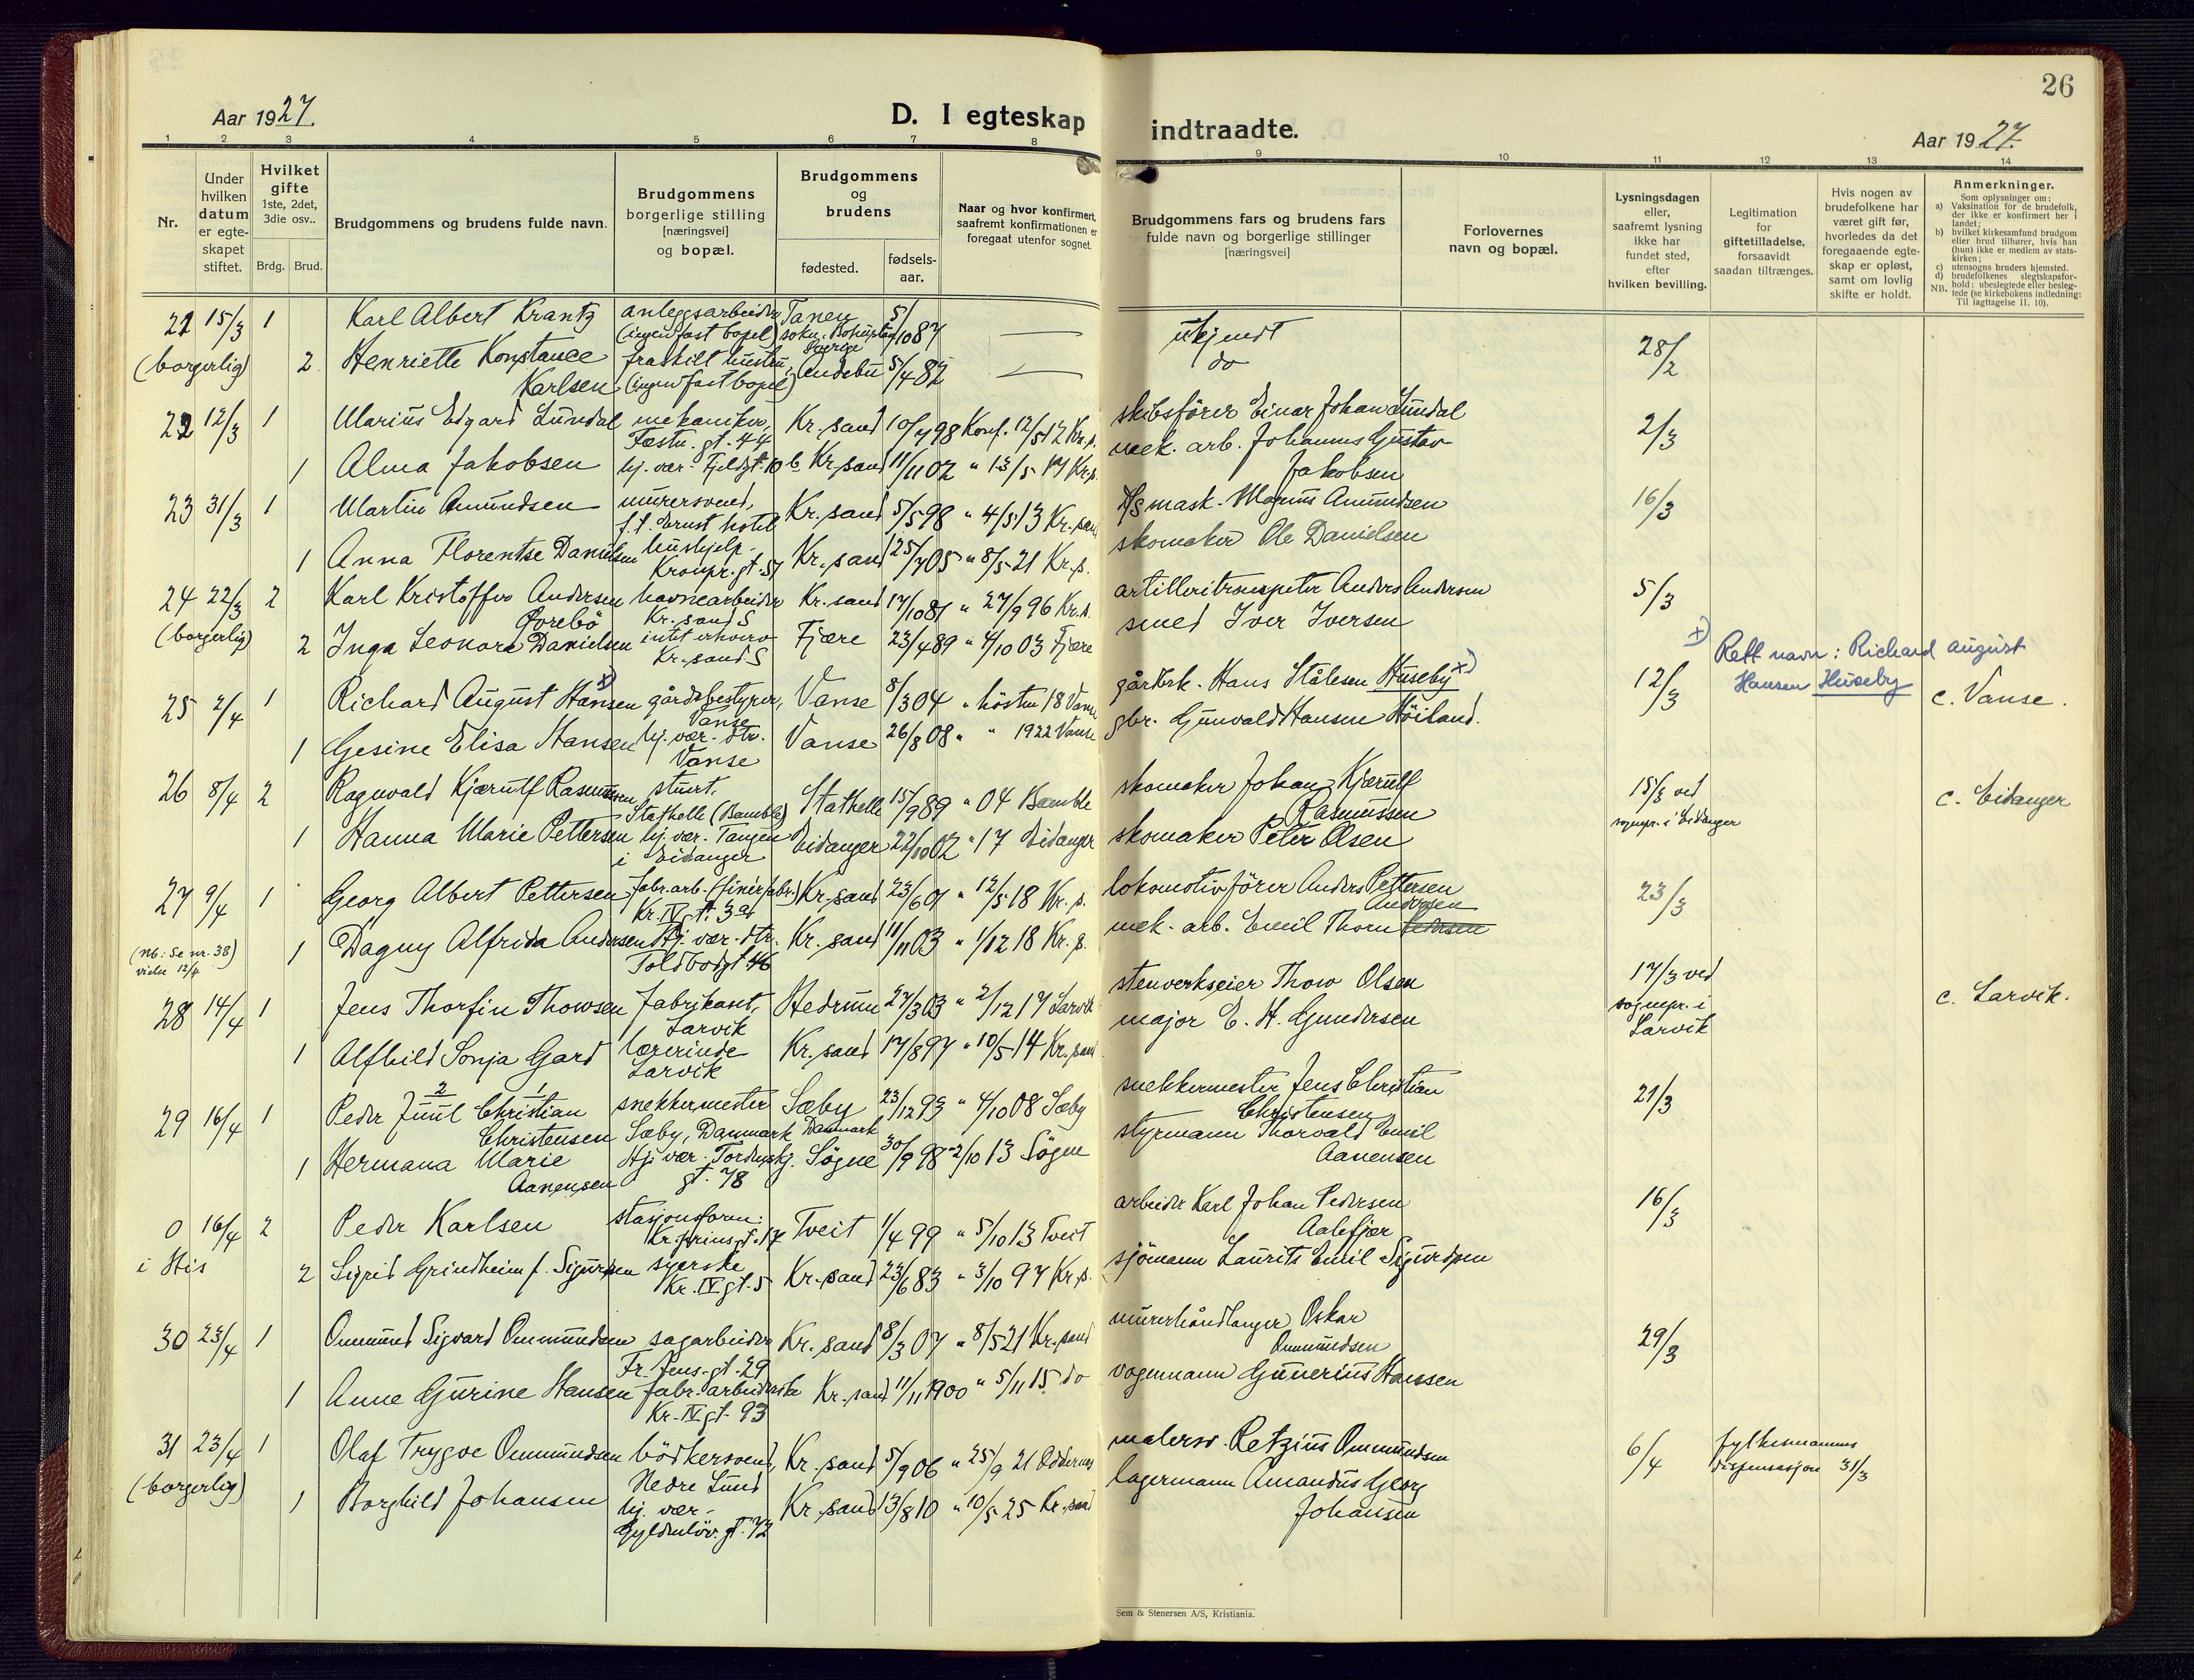 26
Aar 1927.
D. I egteskap indtraadte.
Aar 1927.
1 2 3 4 5 6 7 8 9 10 11 12 13 14
Nr.
Under hvilken datum er egteskapet stiftet.
Hvilket gifte 1ste, 2det, 3die osv..
Brdg. Brud.
Brudgommens og brudens fulde navn.
Brudgommens borgerlige stilling [næringsvei] og bopæl.
Brudgommens og brudens
fødested.
fødsels-aar.
Naar og hvor konfirmert, saafremt konfirmationen er foregaat utenfor sognet.
Brudgommens fars og brudens fars fulde navn og borgerlige stillinger [næringsvei]
Forlovernes navn og bopæl.
Lysningsdagen eller, saafremt lysning ikke har fundet sted, efter hvilken bevilling.
Legitimation for giftetilladelse, forsaavidt saadan tiltrænges.
Hvis nogen av brudefolkene har været gift før, hvorledes da det foregaaende egteskap er opløst, samt om lovlig skifte er holdt.
Anmerkninger.
Som oplysninger om:
a) Vaksination for de brudefolk, der ikke er konfirmert her i landet;
b) hvilket kirkesamfund brudgom eller brud tilhører, hvis han (hun) ikke er medlem av statskirken;
c) utensogns bruders hjemsted.
d) brudefolkenes slegtskapsforhold: ubeslegtede eller beslegtede (se kirkebokens indledning: Til iagttagelse II. 10).
NB.
21 15/3 1 Karl Albert Krantz anleggsarbeider (ingen fast bopel) Tanen sokn. Bohuslän Sverige 5/10 87 — ukjendt 28/2
(borgerlig) 2 Henriette Konstance Karlsen fraskilt hustru, (ingen fast bopel) Andebu 5/4 82 — do
22 12/3 1 Marius Edgard Lundal mekaniker, Festn. gt. 44 Kr.sand 10/7 98 Konf. 12/5 12 Kr.s. skibsförer Einar Johan Lundal 2/3
1 Alma Jakobsen hj. vær. Fjeldgt. 10 b Kr.sand 11/11 02 " 13/5 17 Kr.s. mek. arb. Johannes Gustav Jakobsen
23 31/3 1 Martin Amundsen murersvend, f.t. Ernst hotel Kr.sand 5/5 98 " 4/5 13 Kr.sand D/S mask. Magnus Amundsen 16/3
1 Anna Florentse Danielsen hushjelp. Kronpr. gt. 57 Kr.sand 25/7 05 " 8/5 21 Kr.s. skomaker Ole Danielsen
24 22/3 2 Karl Kristoffer Andersen Övrebö havnearbeider Kr.sand S Kr.sand 17/10 81 " 27/9 96 Kr.s. artilleritrompeter Anders Andersen 5/3
(borgerlig) 2 Inga Leonora Danielsen intet erhverv Kr.sand S Fjære 23/4 89 " 4/10 03 Fjære smed Iver Iversen
x) Rett navn: Richard August Hansen Huseby
25 2/4 1 Richard August Hansen x) gårdsbestyrer, Vanse Vanse 8/3 04 " hösten 18 Vanse gårdbrk. Hans Stålesen Huseby x) 12/3 c. Vanse.
1 Gesine Elisa Hansen hj. vær. dtr. Vanse Vanse 26/8 08 " " 1922 Vanse gbr. Gunvald Hansen Höiland.
26 8/4 2 Ragnvald Kjærulf Rasmussen stuert. Stathelle (Bamble) Stathelle 15/9 89 " 04 Bamble skomaker Johan Kjærulf Rasmussen 15/3 ved sognepr. i Eidanger c. Eidanger
1 Hanna Marie Pettersen hj. vær. Tangen i Eidanger Eidanger 22/10 02 " 17 Eidanger skomaker Peter Olsen
27 9/4 1 Georg Albert Pettersen fabr.arb. (finérfabr.) Kr. IV gt. 3a Kr.sand 23/6 01 " 12/5 18 Kr.s. lokomotivförer Anders Pettersen 23/3
(Nb: Se nr. 38) vielse 12/4
1 Dagny Alfrida Andersen Hj. vær. dtr. Toldbodgt 46 Kr.sand 11/11 03 " 1/12 18 Kr.s. mek. arb. Emil Thorn Andersen
28 14/4 1 Jens Thorfin Thowsen fabrikant, Larvik Hedrum 27/3 03 " 2/12 17 Larvik stenverkseier Thow Olsen 17/3 ved sognepr. i Larvik c. Larvik.
1 Alfhild Sonja Gard lærerinde Larvik Kr.sand 17/8 97 " 10/5 14 Kr.sand major E. H. Gundersen
29 16/4 1 Peder Juul Christian Christensen snekkermester Sæby, Danmark Sæby Danmark 23/12 93 " 4/10 08 Sæby snekkermester Jens Christian Christensen 21/3
1 Hermana Marie Aanensen Hj. vær. Tordenskj. gt. 78 Sögne 30/9 98 " 2/10 13 Sögne styrmann Thorvald Emil Aanensen
0 16/4 2 Peder Karlsen stasjonsform. Kr. prinsgt. 17 Tveit 1/4 99 " 5/10 13 Tveit arbeider Karl Johan Pedersen Aalefjær 16/3
i His 2 Sigrid Grindheim f. Sigurdsen syerske Kr. IV gt. 5 Kr.sand 23/6 83 " 3/10 97 Kr.s. sjömann Laurits Emil Sigurdsen
30 23/4 1 Ommund Sigvard Ommundsen sagarbeider Fr. Fens. gt. 29 Kr.sand 8/3 07 " 8/5 21 Kr.sand murerhåndlanger Oskar Ommundsen 29/3
1 Anne Gurine Hansen fabr. arbeiderske Kr. IV gt. 93 Kr.sand 11/11 1900 " 5/11 15 do vognmann Gunerius Hansen
31 23/4 1 Olaf Trygve Ommundsen bödkersvend, Nedre Lund Kr.sand 5/9 06 " 25/9 21 Oddernes malersv. Retzius Ommundsen 6/4 fylkesmannens dispensasjon 31/3
(borgerlig) 1 Borghild Johansen hj. vær. Gyldenlöv. gt. 72 Kr.sand 13/8 10 " 10/5 25 Kr.sand lagermann Amandus Georg Johansen
Sem & Stenersen A/S, Kristiania.